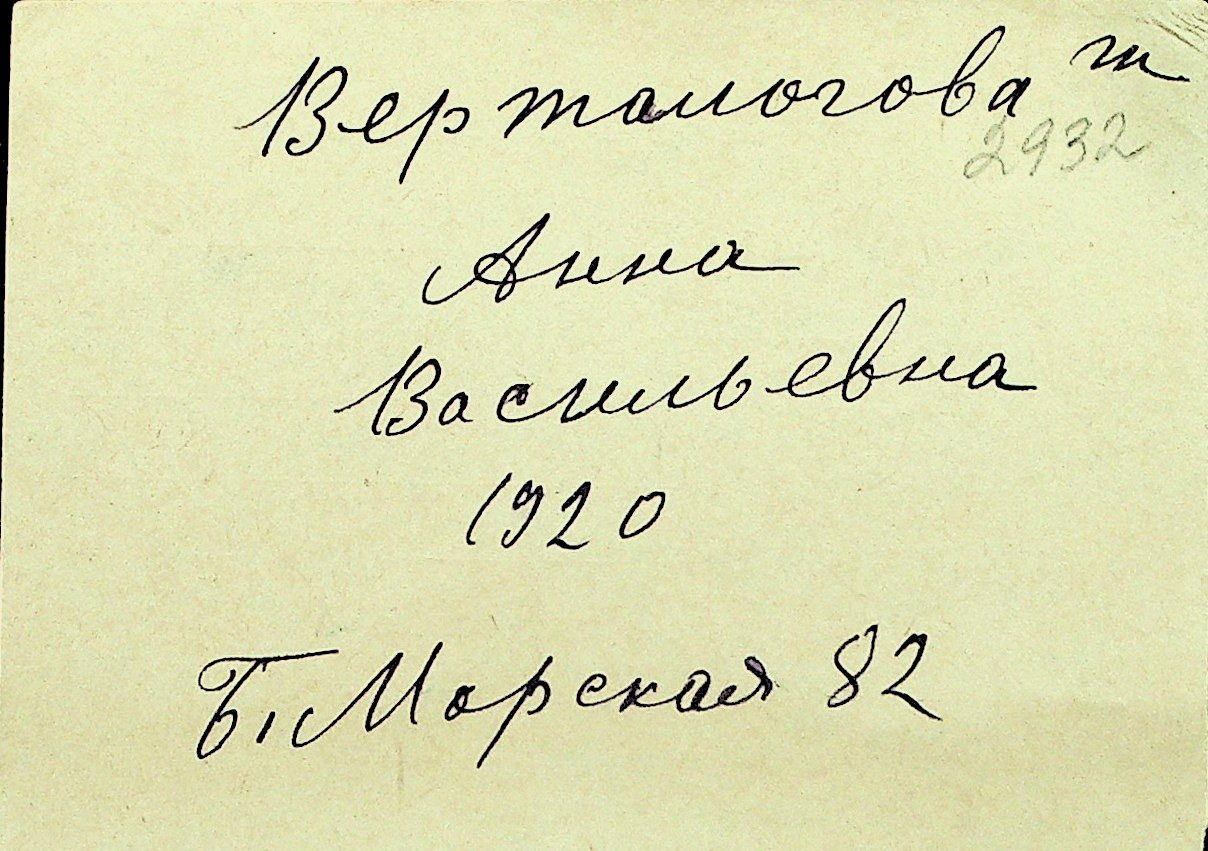 Верталогова т
2932
Анна
Васильевна
1920
Б. Морская 82